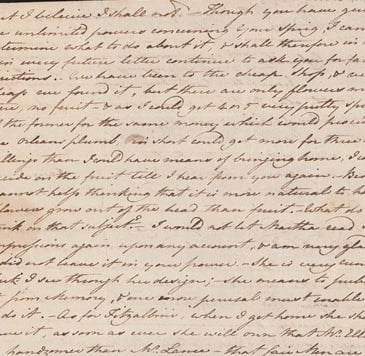 t I believe I shall not. — Though you have giv
e unlimited powers concerning your Sprig, I can
termine what to do about it, & shall therefore in
in every future letter continue to ask you for fa
rections. — We have been to the cheap Shop, & ve
cheap we found it, but there are only flowers m
re, no fruit - & as I could get 4 or 5 very pretty spr
f the former for the same money which would procu
e Orlean plumb, in short could get more for three
llings than I could have means of bringing home, I c
cide on the fruit till I hear from you again. — Bes
cannot help thinking that it is more natural to h
flowers grow out of the head than fruit. — What do
ink on that subject? — I would not let Martha read
mpressions again upon any account, & am very gla
did not leave it in your power. — She is very cun
but I see through her design; — she means to publ
from Memory, & one more perusal must enable
do it. — As for Fitzalbini, when I get home she sh
ve it, as soon as ever she will own that Mr. Ell
handsomer than Mr. Lance — that fair Men are